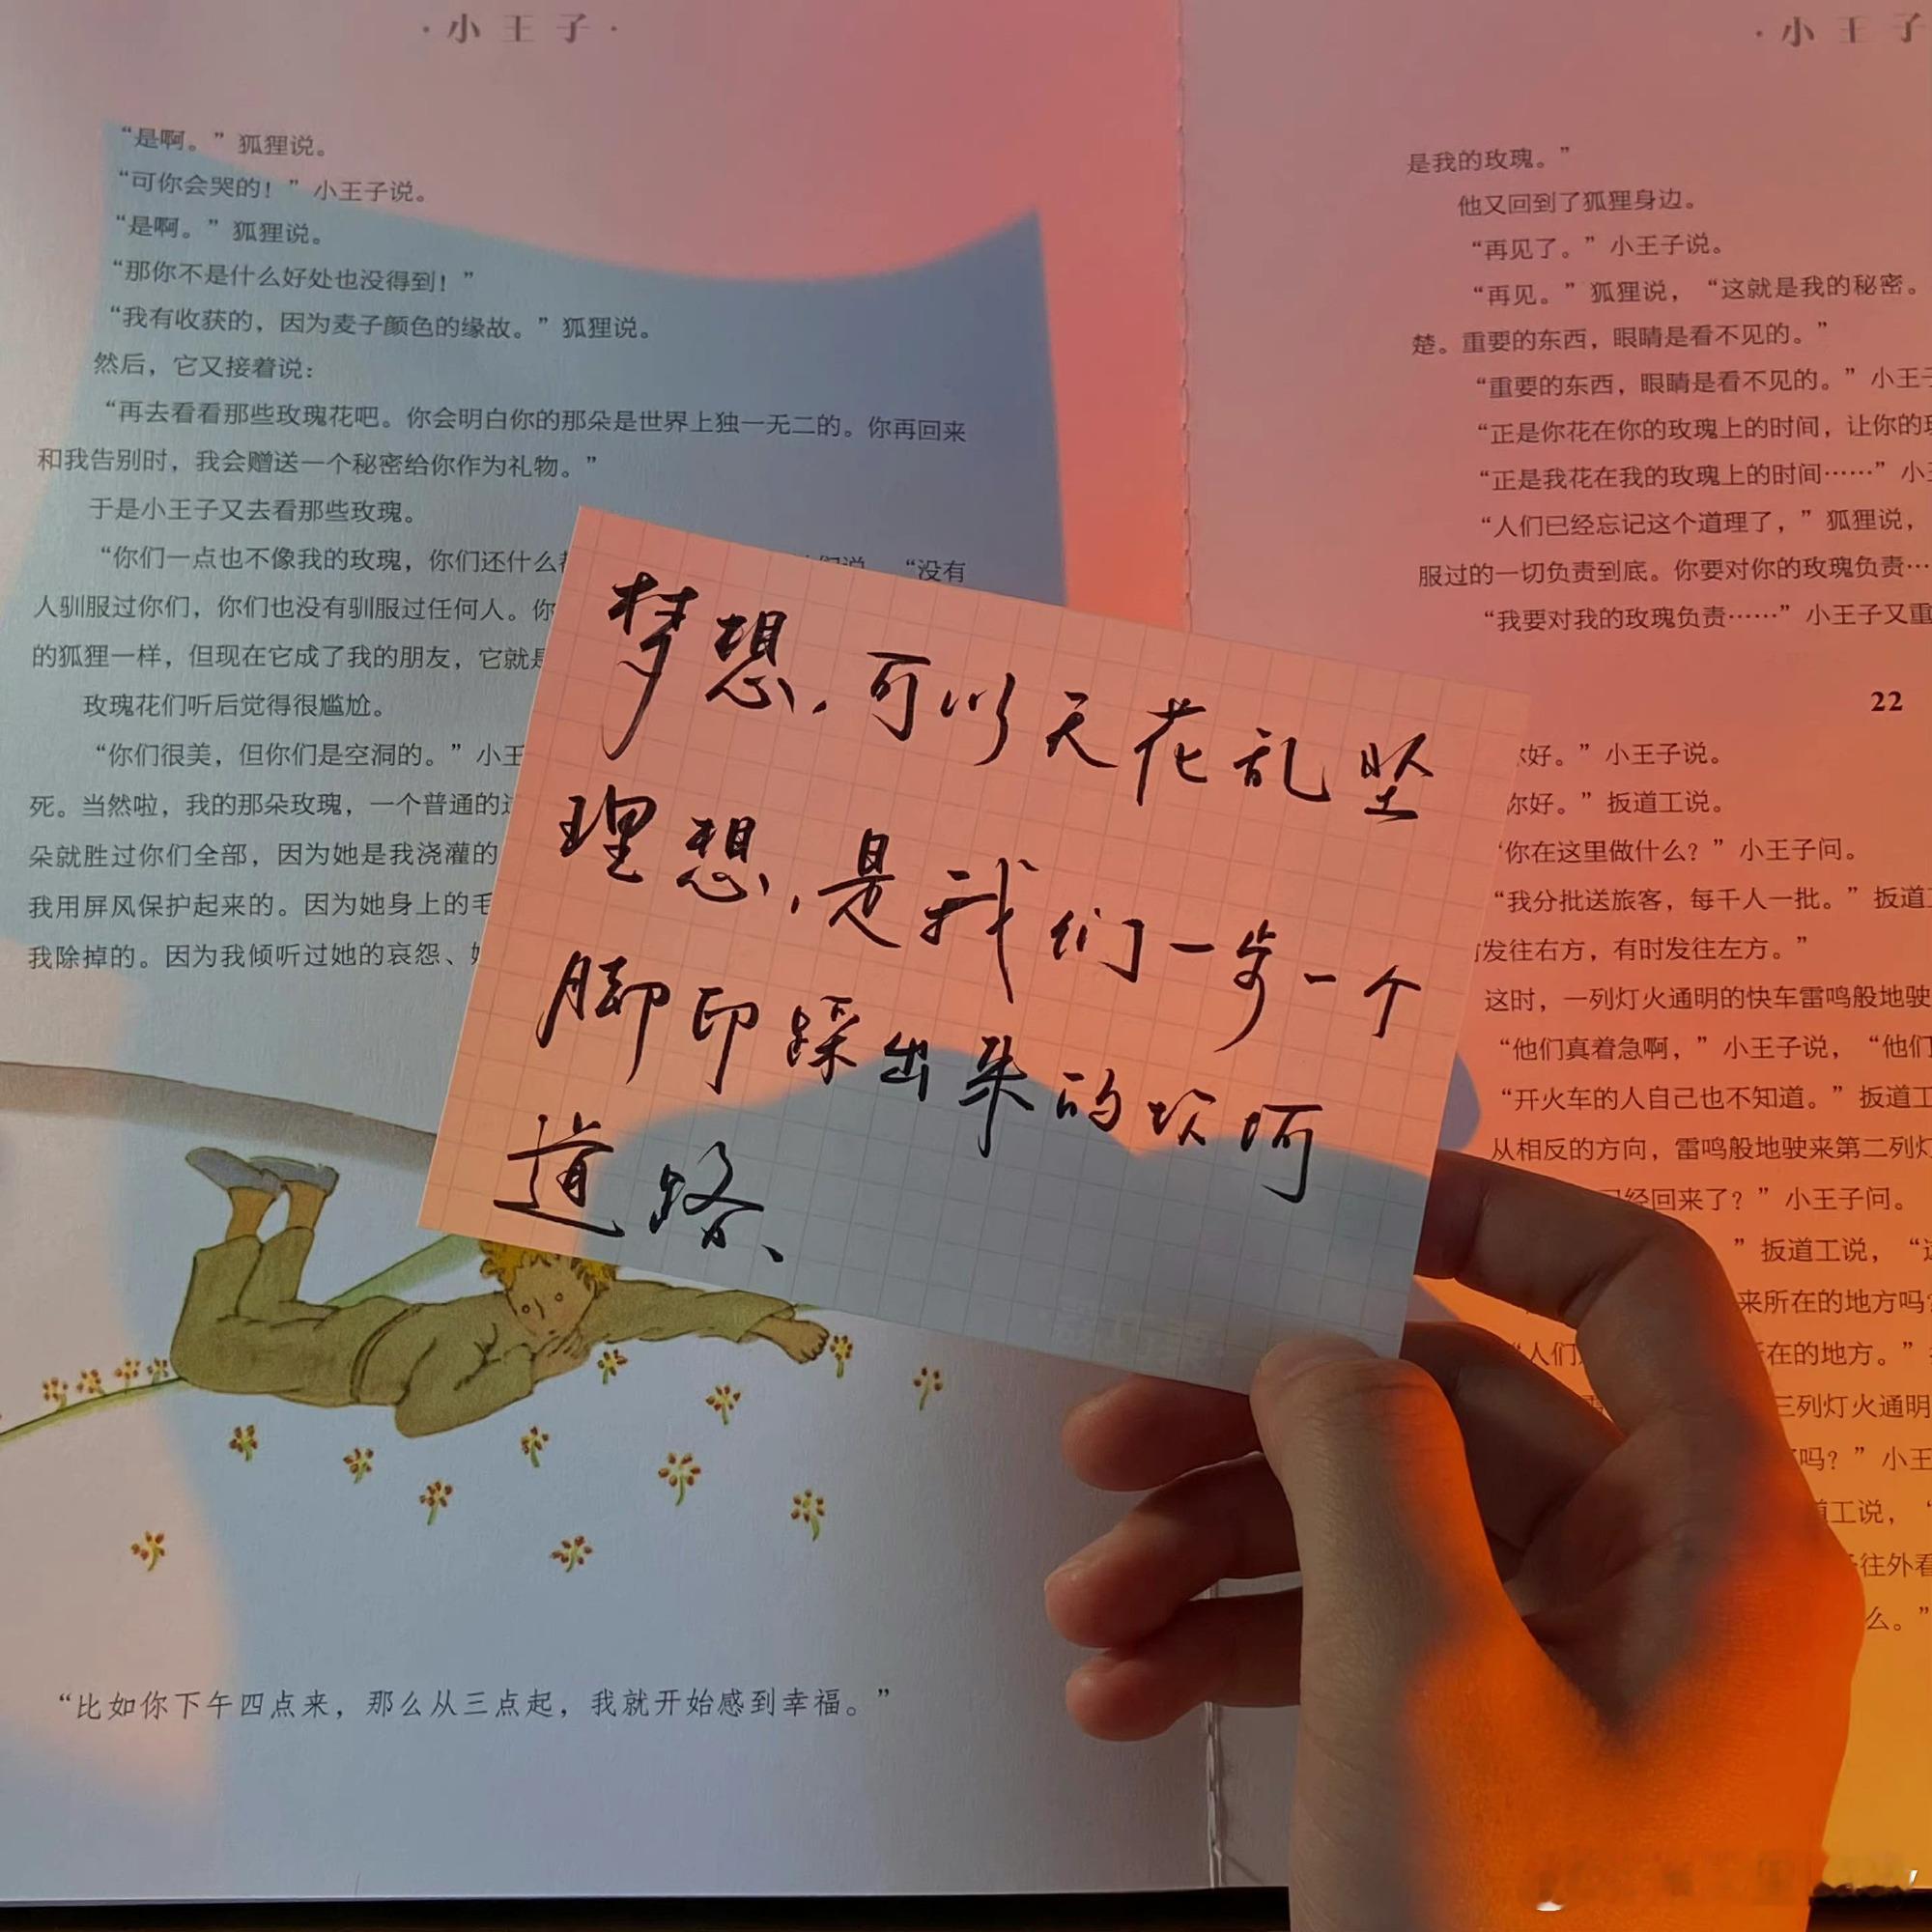 ·小王子·
“是啊。”狐狸说。
“可你会哭的！”小王子说。
“是啊。”狐狸说。
“那你不是什么好处也没得到！”
“我有收获的，因为麦子颜色的缘故。”狐狸说。
然后，它又接着说：
“再去看看那些玫瑰花吧。你会明白你的那朵是世界上独一无二的。你再回来
和我告别时，我会赠送一个秘密给你作为礼物。”
于是小王子又去看那些玫瑰。
“你们一点也不像我的玫瑰，你们还什么
“没有
人驯服过你们，你们也没有驯服过任何人。你
的狐狸一样，但现在它成了我的朋友，它就是
玫瑰花们听后觉得很尴尬。
“你们很美，但你们是空洞的。”小王
死。当然啦，我的那朵玫瑰，一个普通的
朵就胜过你们全部，因为她是我浇灌的
我用屏风保护起来的。因为她身上的毛
我除掉的。因为我倾听过她的哀怨、
“比如你下午四点来，那么从三点起，我就开始感到幸福。”
梦想，可以天花乱坠
理想，是我们一步一个
脚印踩出来的坎坷
道路、
·小王子
是我的玫瑰。”
他又回到了狐狸身边。
“再见了。”小王子说。
“再见。”狐狸说，“这就是我的秘密。
楚。重要的东西，眼睛是看不见的。”
“重要的东西，眼睛是看不见的。”小王
“正是你花在你的玫瑰上的时间，让你的
“正是我花在我的玫瑰上的时间……”小
“人们已经忘记这个道理了，”狐狸说，
服过的一切负责到底。你要对你的玫瑰负责…
“我要对我的玫瑰负责……”小王子又重
22
好。”小王子说。
你好。”扳道工说。
“你在这里做什么？”小王子问。
“我分批送旅客，每千人一批。”扳道
发往右方，有时发往左方。”
这时，一列灯火通明的快车雷鸣般地驶
“他们真着急啊，”小王子说，“他们
“开火车的人自己也不知道。”扳道工
从相反的方向，雷鸣般地驶来第二列
经回来了？”小王子问。
”扳道工说，“
来所在的地方吗
“人们 所在的地方。”
三列灯火通明
吗？”小王
道工说，
往外看
么。”